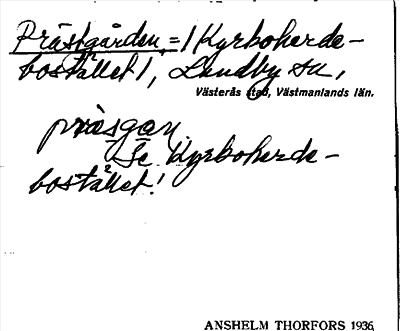 Prästgården, = (Kyrkoherde-
bostället), Lundby sn,
Västerås stad, Västmanlands län.
präsgaṇ
Se Kyrkoherde-
bostället!
ANSHELM THORFORS 1936.